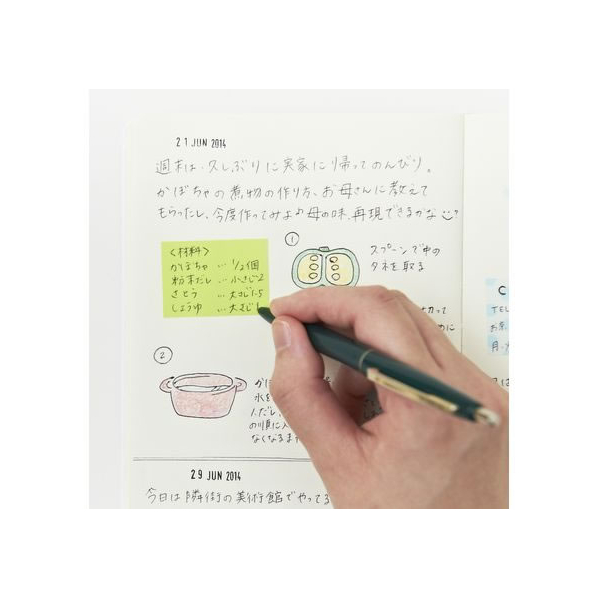 21 JUN 2014
週末は、久しぶりに実家に帰ってのんびり。
かぼちゃの煮物の作り方、お母さんに教えて
もらったし、今度作ってみよう 母の味、再現できるかな
〈材料〉
かぼちゃ … 1/2個
粉末だし … 小さじ2
さとう … 大さじ1.5
しょうゆ … 大さじ1
①
スプーンで中の
タネを取る
切って
めに
②
かぼ
水を
んだし、
の順に入
なくなるまで
29 JUN 2014
今日は隣街の美術館でやってる
C
TEL
お茶
月・